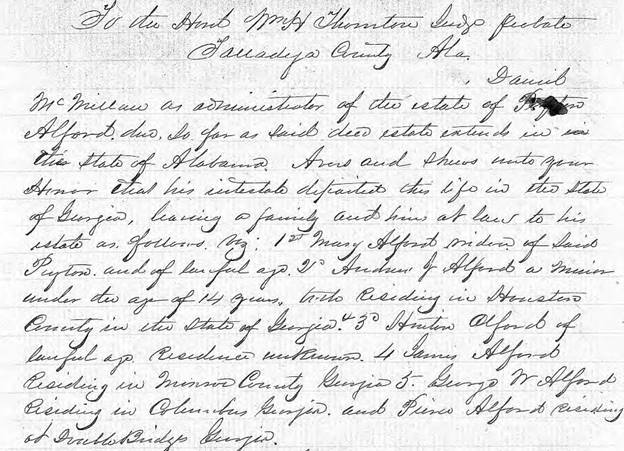 To the Honl Wm H Thornton Judge Probate
Talladega County Ala.
Daniel
McMillan as administrator of the estate of Peyton
Alford. dec. So far as said decd estate extends in in
this State of Alabama Avers and shews unto your
Honor that his intestate departed this life in the State
of Georgia, leaving a family and heirs at law to his
estate as follows. Viz: 1st Mary Alford widow of said
Peyton. and of lawful age. 2d Andrew J Alford a minor
under the age of 14 years, both residing in Houston
County in the State of Georgia. & 3d Hinton Alford of
lawful age Residence unknown. 4 James Alford
Residing in Monroe County Georgia 5. George W Alford
Residing in Columbus Georgia. and Pierce Alford residing
at Double Bridges Georgia.